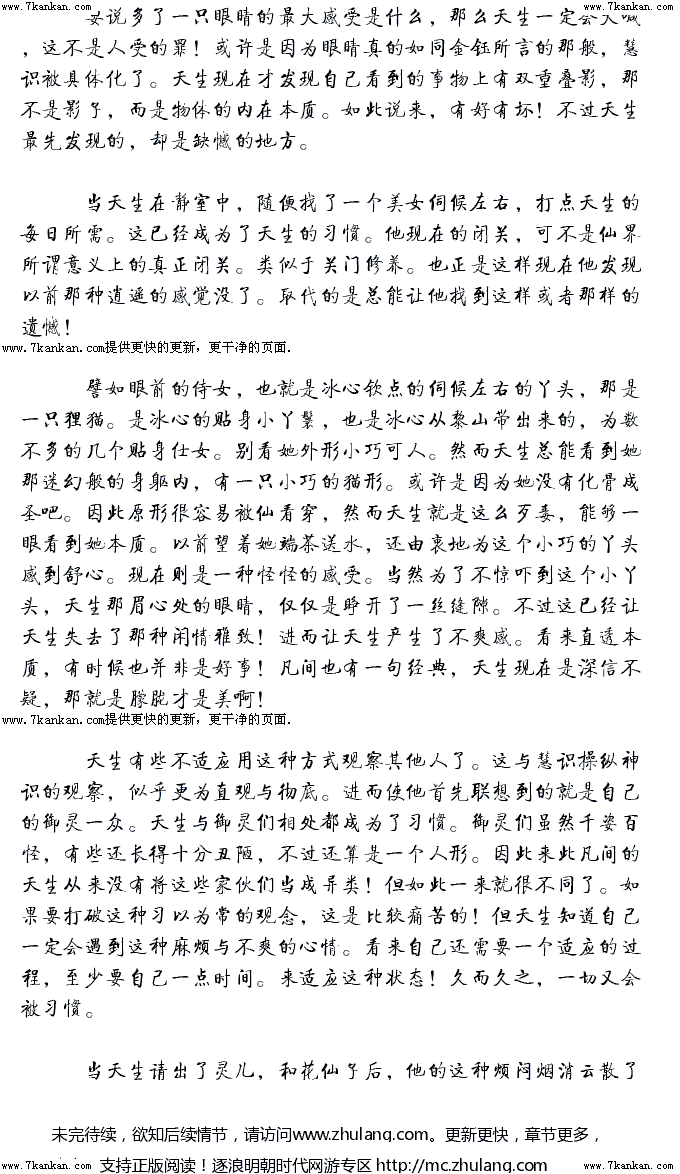 www.7kankan.com www.7kankan.com
要说多了一只眼睛的最大感受是什么，那么天生一定会大喊
，这不是人受的罪！或许是因为眼睛真的如同金钰所言的那般，慧
识被具体化了。天生现在才发现自己看到的事物上有双重叠影，那
不是影子，而是物体的内在本质。如此说来，有好有坏！不过天生
最先发现的，却是缺憾的地方。
当天生在静室中，随便找了一个美女伺候左右，打点天生的
每日所需。这已经成为了天生的习惯。他现在的闭关，可不是仙界
所谓意义上的真正闭关。类似于关门修养。也正是这样现在他发现
以前那种逍遥的感觉没了。取代的是总能让他找到这样或者那样的
遗憾！
www.7kankan.com提供更快的更新，更干净的页面.
譬如眼前的侍女，也就是冰心钦点的伺候左右的丫头，那是
一只狸猫。是冰心的贴身小丫鬟，也是冰心从黎山带出来的，为数
不多的几个贴身仕女。别看她外形小巧可人。然而天生总能看到她
那迷幻般的身躯内，有一只小巧的猫形。或许是因为她没有化骨成
圣吧。因此原形很容易被仙看穿，然而天生就是这么歹毒，能够一
眼看到她本质。以前望着她端茶送水，还由衷地为这个小巧的丫头
感到舒心。现在则是一种怪怪的感受。当然为了不惊吓到这个小丫
头，天生那眉心处的眼睛，仅仅是睁开了一丝缝隙。不过这已经让
天生失去了那种闲情雅致！进而让天生产生了不爽感。看来直透本
质，有时候也并非是好事！凡间也有一句经典，天生现在是深信不
疑，那就是朦胧才是美啊！
www.7kankan.com提供更快的更新，更干净的页面.
天生有些不适应用这种方式观察其他人了。这与慧识操纵神
识的观察，似乎更为直观与彻底。进而使他首先联想到的就是自己
的御灵一众。天生与御灵们相处都成为了习惯。御灵们虽然千姿百
怪，有些还长得十分丑陋，不过还算是一个人形。因此来此凡间的
天生从来没有将这些家伙们当成异类！但如此一来就很不同了。如
果要打破这种习以为常的观念，这是比较痛苦的！但天生知道自己
一定会遇到这种麻烦与不爽的心情。看来自己还需要一个适应的过
程，至少要自己一点时间。来适应这种状态！久而久之，一切又会
被习惯。
当天生请出了灵儿，和花仙子后，他的这种烦闷烟消云散了
未完待续，欲知后续情节，请访问www.zhulang.com。更新更快，章节更多，
支持正版阅读！逐浪明朝时代网游专区 http://mc.zhulang.com
www.7kankan.com www.7kankan.com